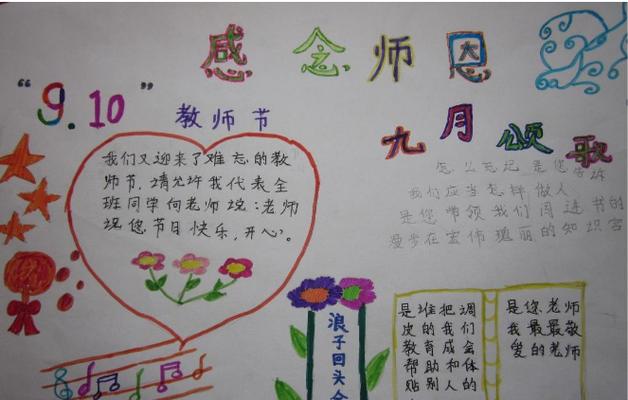 感念师恩
"9.10"
教师节
九月颂歌
我们又迎来了难忘的教
师节,请允许我代表全
班同学向老师说:老师
祝您节日快乐,开心。
怎么忘记 是您告诉
我们应当怎样做人
是您带领我们周进书的
漫步在宏伟瑰丽的知识宫
浪子回头金
是谁把调
皮的我们
教育成会
帮助和体
贴别人的
是您老师
我最最敬
爱的老师